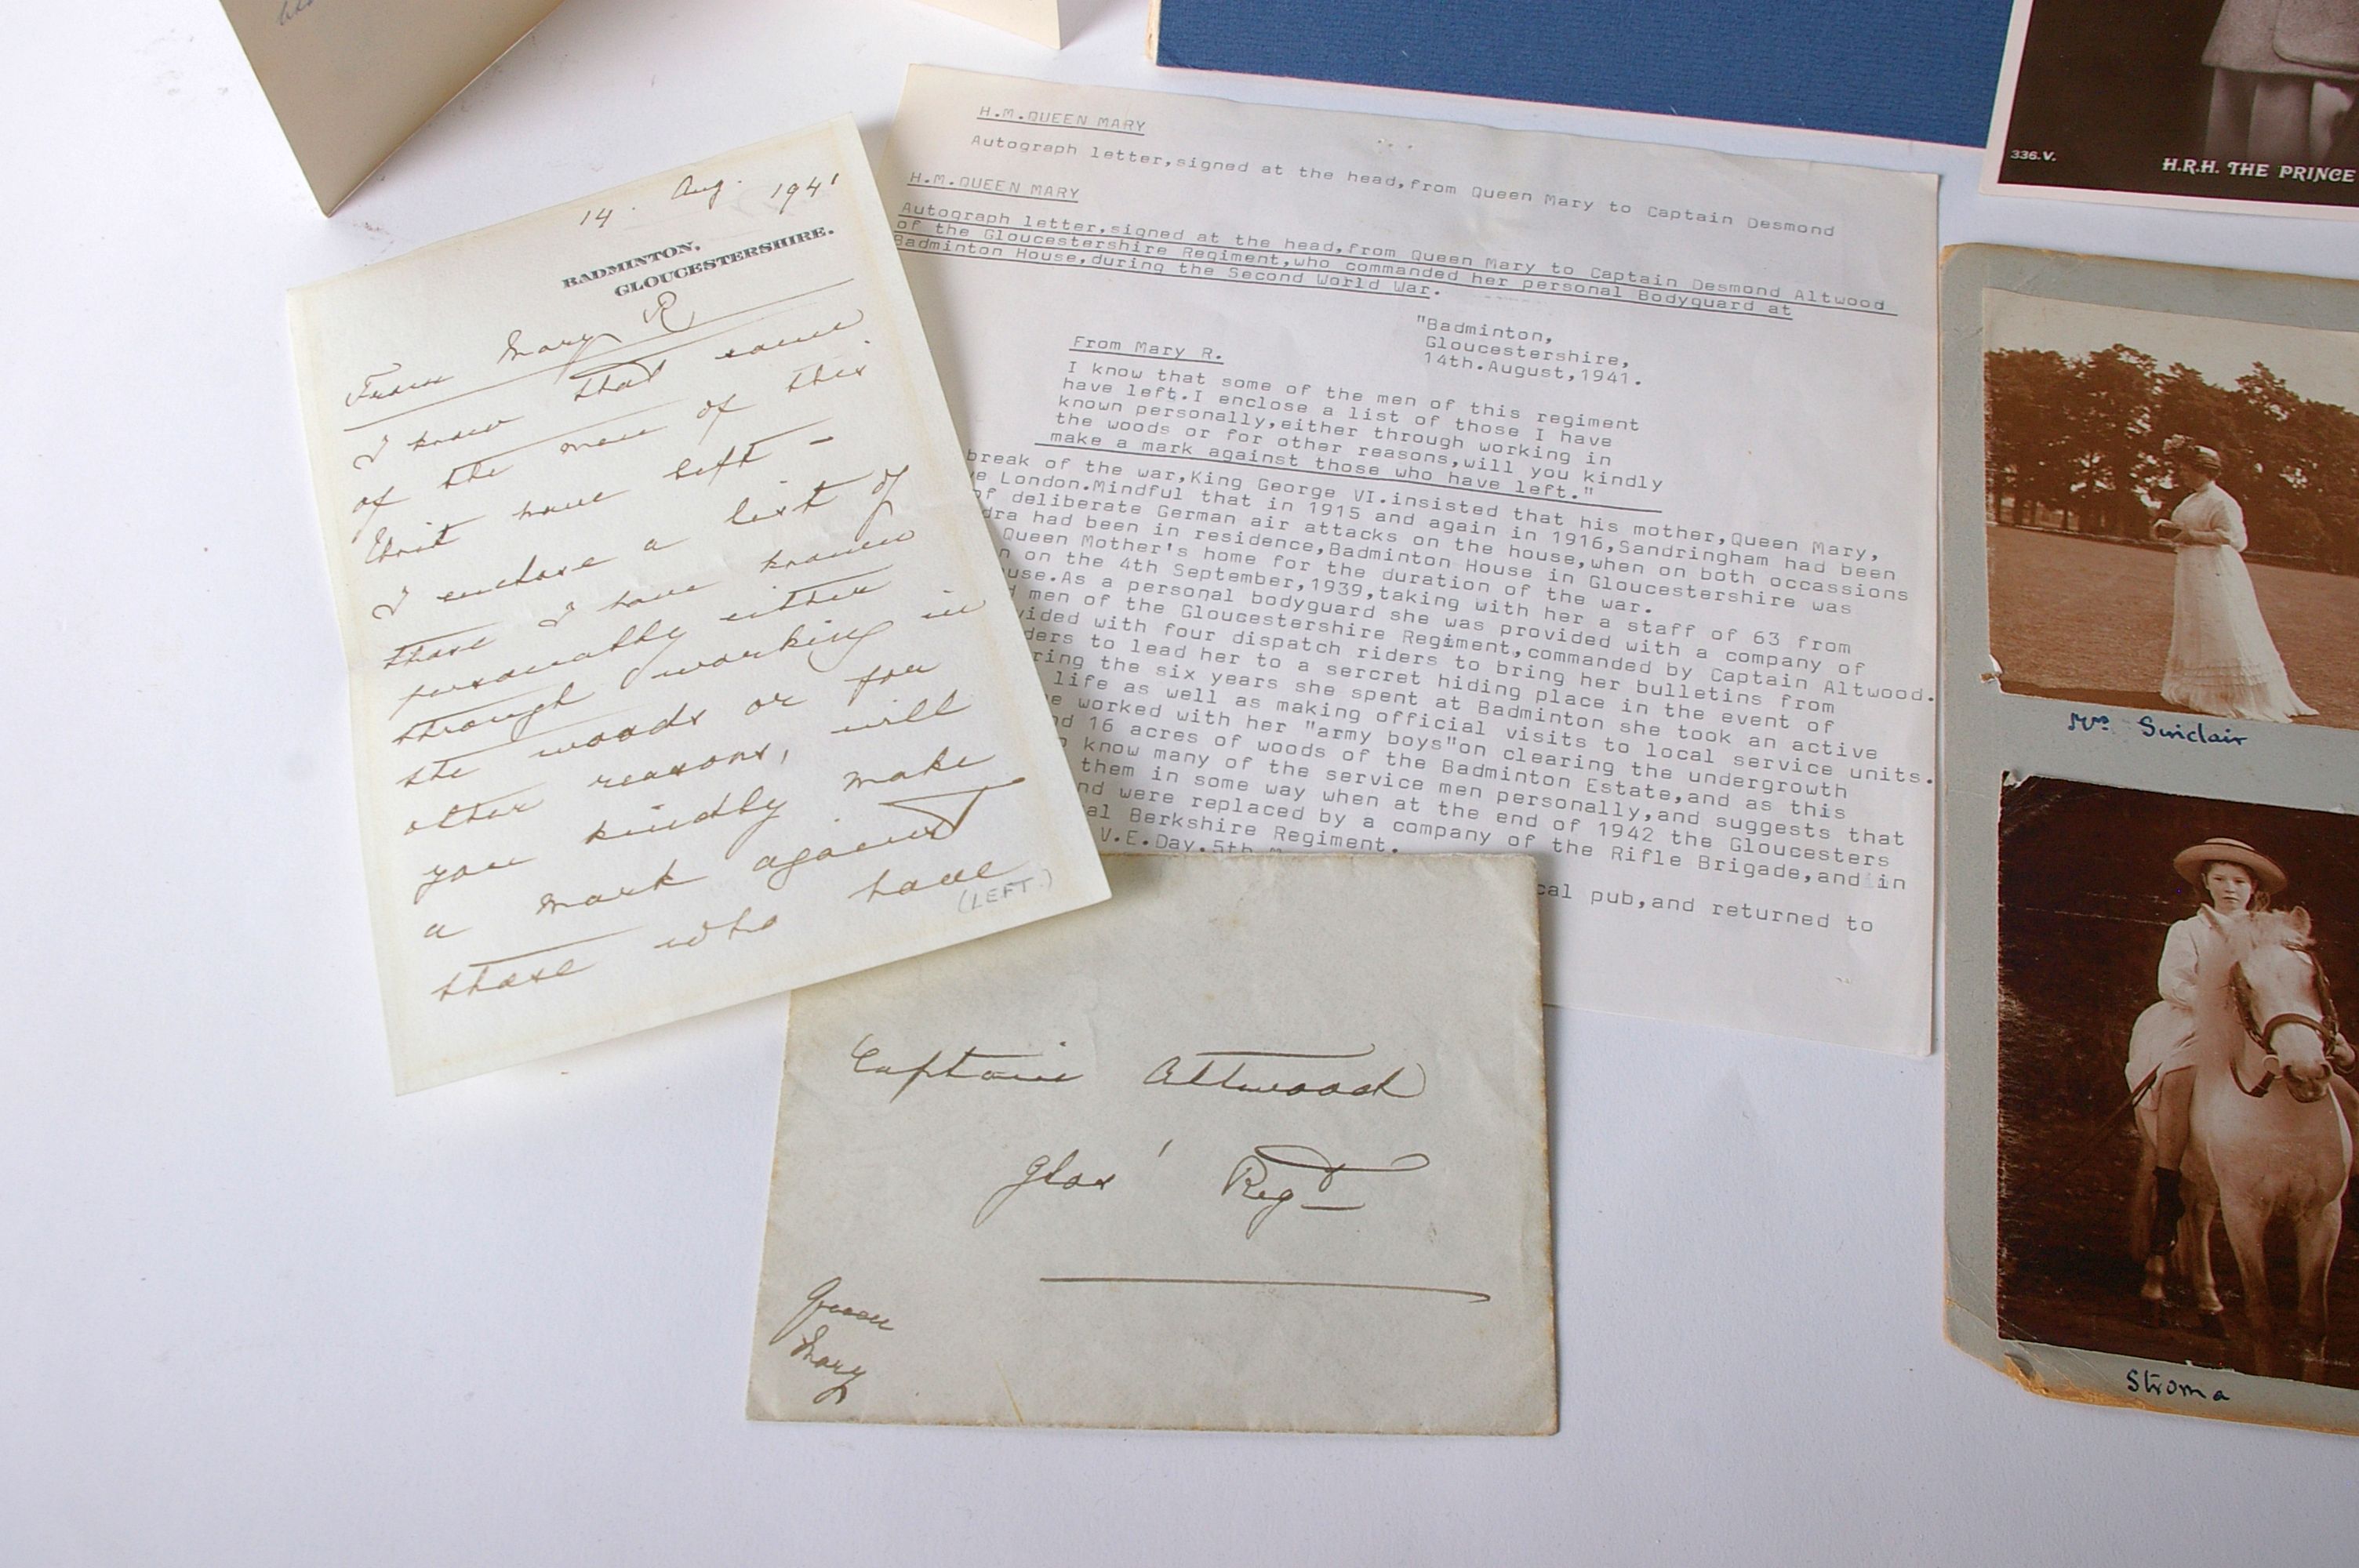 14 Aug. 1941
BADMINTON,
GLOUCESTERSHIRE.
From Mary R
I know that some
of the men of this
Unit have left –
I enclose a list of
those I have known
personally either
through working in
the woods or for
other reasons, will
you kindly make
a mark against
those who have
(LEFT.)
H.M.QUEEN MARY
Autograph letter,signed at the head,from Queen Mary to Captain Desmond
H.M.QUEEN MARY
Autograph letter,signed at the head,from Queen Mary to Captain Desmond Altwood
of the Gloucestershire Regiment,who commanded her personal Bodyguard at
Badminton House,during the Second World War.
"Badminton,
Gloucestershire,
14th.August,1941.
From Mary R.
I know that some of the men of this regiment
have left.I enclose a list of those I have
known personally,either through working in
the woods or for other reasons,will you kindly
make a mark against those who have left."
break of the war,King George VI.insisted that his mother,Queen Mary,
London.Mindful that in 1915 and again in 1916,Sandringham had been
of deliberate German air attacks on the house,when on both occassions
had been in residence,Badminton House in Gloucestershire was
Queen Mother's home for the duration of the war.
on the 4th September,1939,taking with her a staff of 63 from
As a personal bodyguard she was provided with a company of
men of the Gloucestershire Regiment,commanded by Captain Altwood.
with four dispatch riders to bring her bulletins from
to lead her to a sercret hiding place in the event of
the six years she spent at Badminton she took an active
life as well as making official visits to local service units.
worked with her "army boys"on clearing the undergrowth
16 acres of woods of the Badminton Estate,and as this
know many of the service men personally,and suggests that
them in some way when at the end of 1942 the Gloucesters
were replaced by a company of the Rifle Brigade,and in
Berkshire Regiment.
V.E.Day.5th
pub,and returned to
Captain Attwood
Glos' Regt
Queen
Mary
336.V.
H.R.H. THE PRINCE
Mrs Sinclair
Stroma